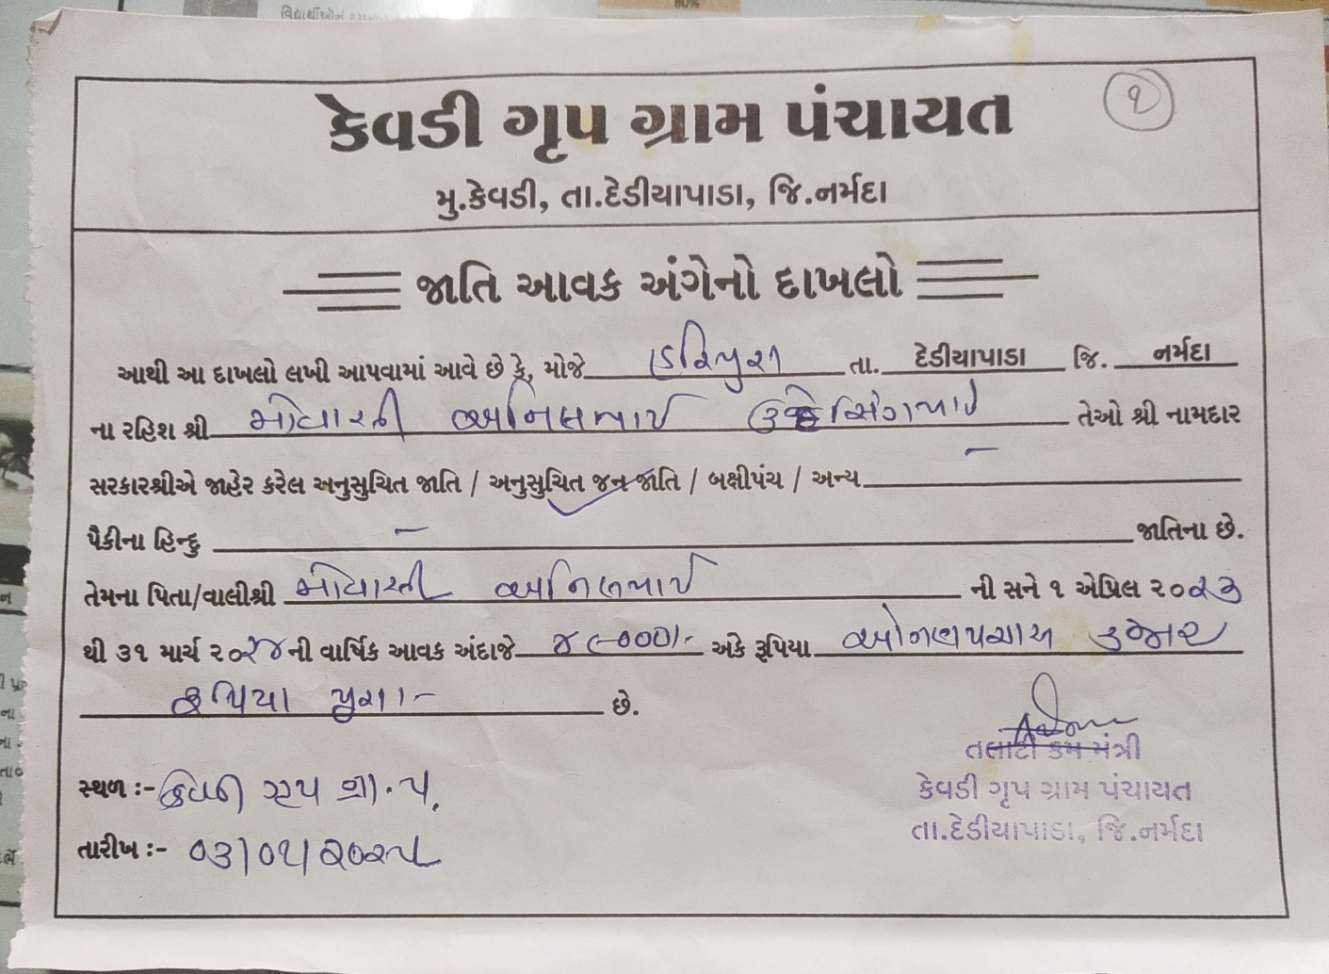 ૧
કેવડી ગૃપ ગ્રામ પંચાયત
મુ.કેવડી, તા.દેડીયાપાડા, જિ.નર્મદા
જાતિ આવક અંગેનો દાખલો
આથી આ દાખલો લખી આપવામાં આવે છે કે, મોજે ડુંગરીપુરા તા. દેડીયાપાડા જિ. નર્મદા
ના રહિશ શ્રી અનિલભાઈ તેઓ શ્રી નામદાર
સરકારશ્રીએ જાહેર કરેલ અનુસુચિત જાતિ / અનુસુચિત જન જાતિ / બક્ષીપંચ / અન્ય –
પૈકીના હિન્દુ – જાતિના છે.
તેમના પિતા/વાલીશ્રી અનિલભાઈ ની સને ૧ એપ્રિલ ૨૦૨૩
થી ૩૧ માર્ચ ૨૦૨૪ ની વાર્ષિક આવક અંદાજે ૪૯૦૦૦/- અંકે રૂપિયા ઓગણપચાસ હજાર
રૂપિયા પુરા/- છે.
સ્થળ :- કેવડી ગૃપ ગ્રા.પં.
તલાટી કમ મંત્રી
કેવડી ગૃપ ગ્રામ પંચાયત
તા.દેડીયાપાડા, જિ.નર્મદા
તારીખ :- ૦૩/૦૧/૨૦૨૫